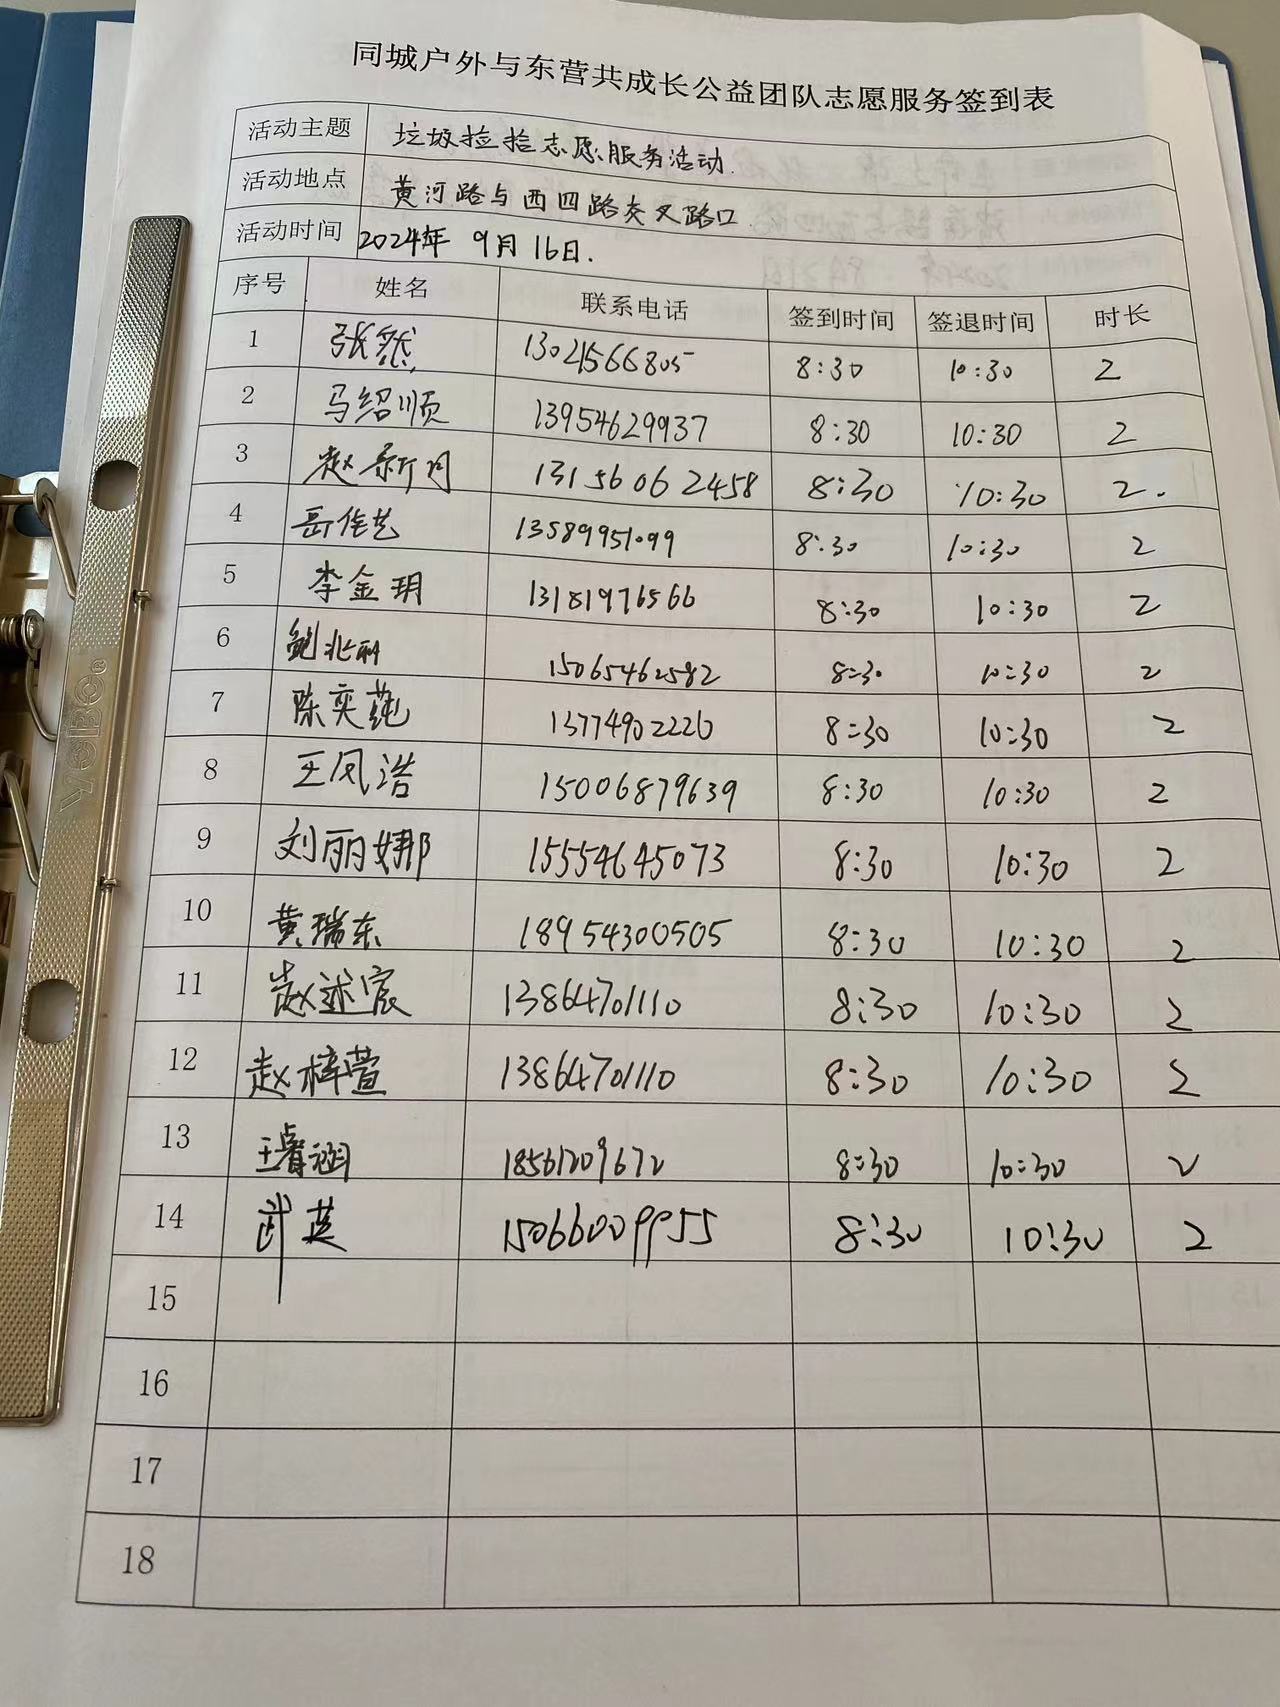 同城户外与东营共成长公益团队志愿服务签到表
活动主题 垃圾捡拾志愿服务活动.
活动地点 黄河路与西四路交叉路口.
活动时间 2024年 9月16日.
序号 姓名 联系电话 签到时间 签退时间 时长
1 张然 13021566805 8:30 10:30 2
2 马绍顺 13954629937 8:30 10:30 2
3 赵新月 13156062458 8:30 10:30 2.
4 岳佳艺 13589951099 8:30 10:30 2
5 李金玥 13181976566 8:30 10:30 2
6 15065462582 8:30 10:30 2
7 陈奕莼 13774902220 8:30 10:30 2
8 王凤浩 15006879639 8:30 10:30 2
9 刘丽娜 15554645073 8:30 10:30 2
10 黄瑞东 18954300505 8:30 10:30 2
11 赵述宸 13864701110 8:30 10:30 2
12 赵梓萱 13864701110 8:30 10:30 2
13 王睿涵 18561209672 8:30 10:30 2
14 武英 15066009955 8:30 10:30 2
15
16
17
18